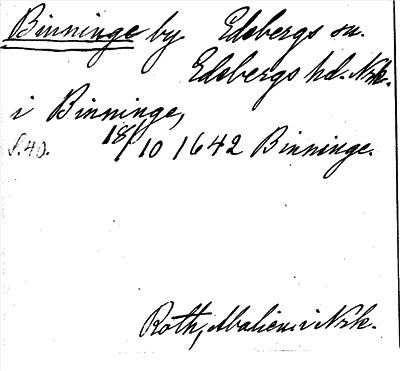 Binninge by Edsbergs sn.
Edsbergs hd. Nrk.
i Binninge,
S.40. 18/10 1642 Binninge.
Roth, i Nrk.